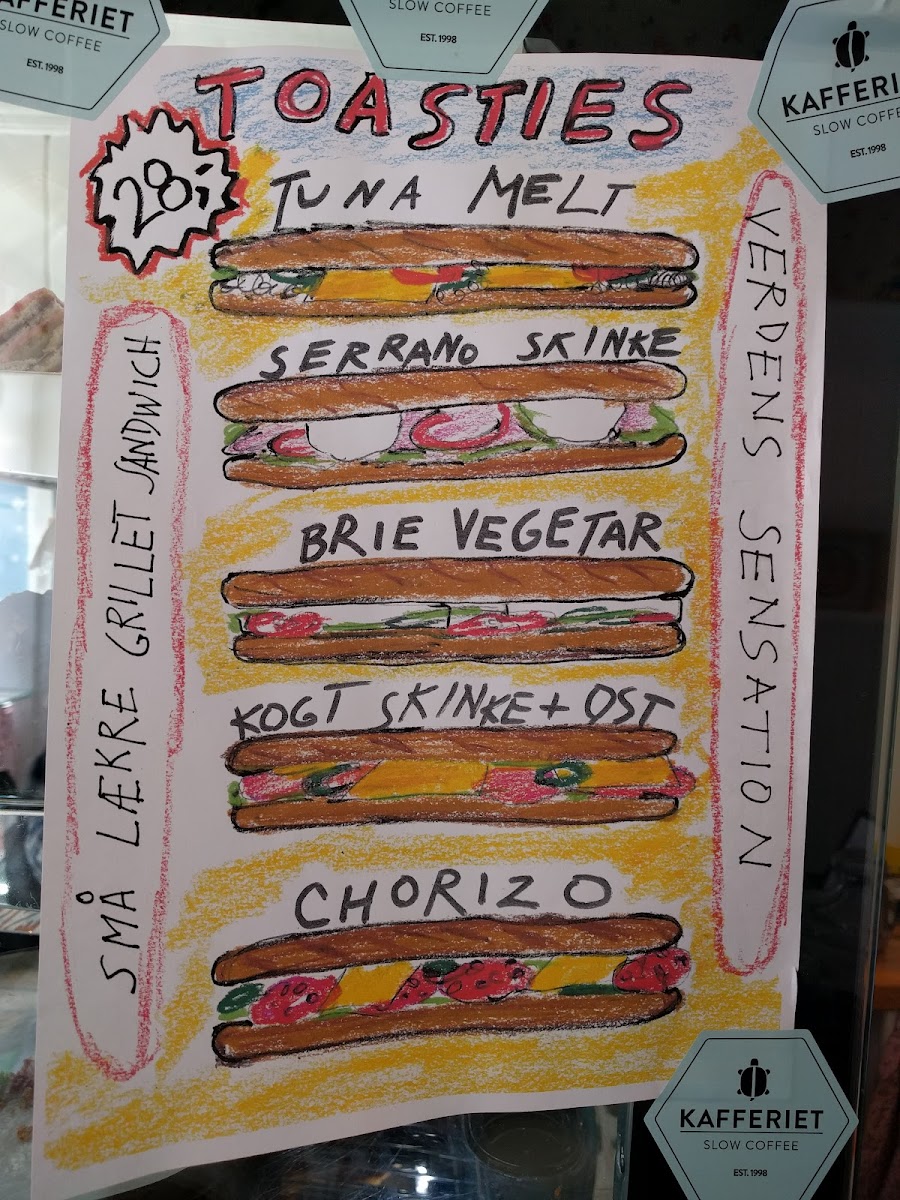 KAFFERIET
SLOW COFFEE
EST. 1998
SLOW COFFEE
EST. 1998
KAFFERIET
SLOW COFFEE
EST. 1998
TOASTIES
28;
TUNA MELT
SERRANO SKINKE
BRIE VEGETAR
KOGT SKINKE + OST
CHORIZO
SMÅ LÆKRE GRILLET SANDWICH
VERDENS SENSATION
KAFFERIET
SLOW COFFEE
EST. 1998